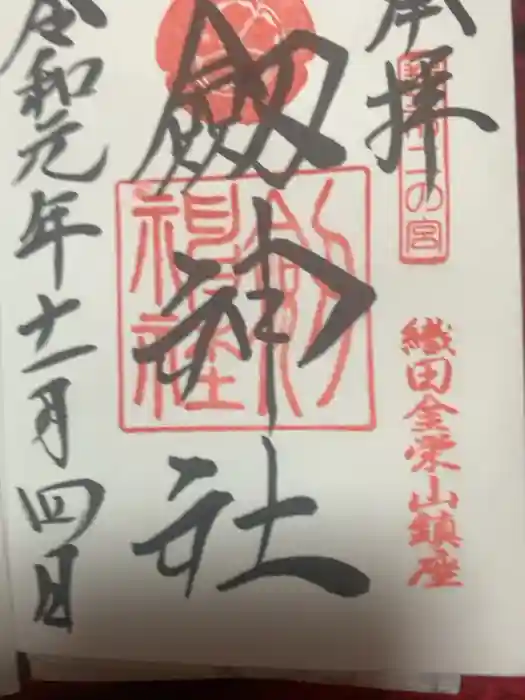 奉拝
越前二の宮
織田金栄山鎮座
劔神社
劔神社
令和元年十一月四日